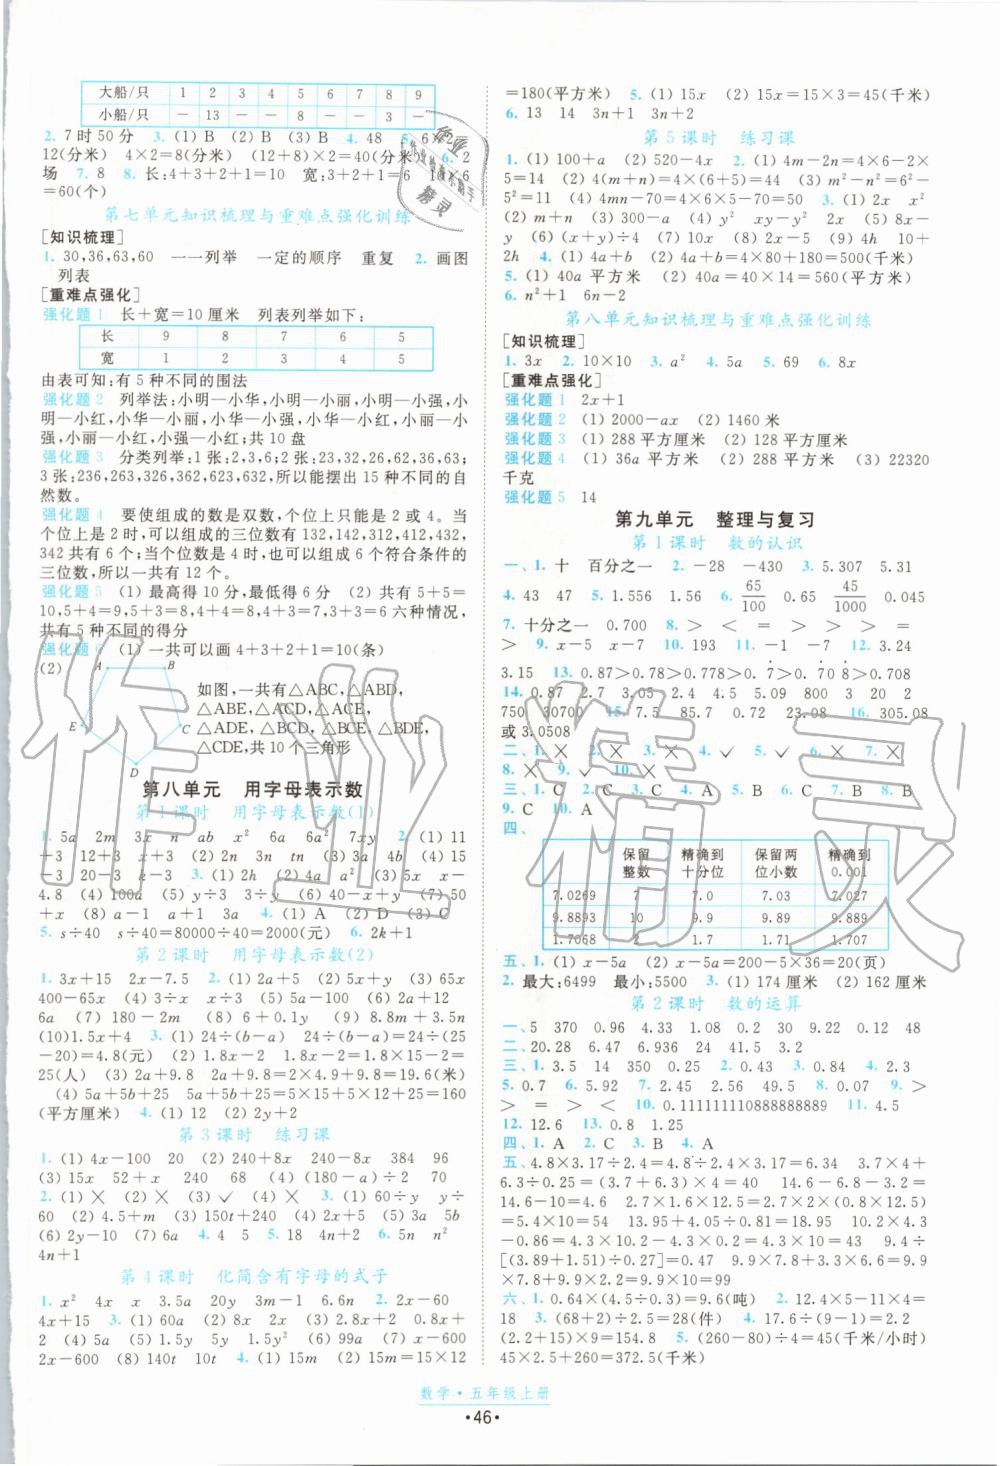 大船/只 1 2 3 4 5 6 7 8 9
小船/只 — 13 — — 8 — — 3 —
2. 7时50分 3. (1) B (2) B (3) B 4. 48 5.
12(分米) 4×2=8(分米) (12+8)×2=40(分米) 6. 2
场 7. 8 8. 长:4+3+2+1=10 宽:3+2+1=6 10×6
=60(个)
第七单元知识梳理与重难点强化训练
[知识梳理]
1. 30,36,63,60 一一列举 一定的顺序 重复 2. 画图
列表
[重难点强化]
强化题1 长+宽=10厘米 列表列举如下:
长 9 8 7 6 5
宽 1 2 3 4 5
由表可知:有5种不同的围法
强化题2 列举法:小明—小华,小明—小丽,小明—小强,小
明—小红,小华—小丽,小华—小强,小华—小红,小丽—小
强,小丽—小红,小强—小红;共10盘
强化题3 分类列举:1张:2,3,6;2张:23,32,26,62,36,63;
3张:236,263,326,362,623,632,所以能摆出15种不同的
自然数。
强化题4 要使组成的数是双数,个位上只能是2或4。当个
位是2时,可以组成的三位数有132,142,312,412,342,432,
共有6个;当个位数是4时,也可以组成6个符合条件的
三位数,所以一共有12个。
强化题5 (1)最高得10分,最低得6分 (2)共有5+5=
10,5+4=9,5+3=8,4+4=8,4+3=7,3+3=6六种情况,
共有5种不同的得分
强化题6 (1)一共可以画4+3+2+1=10(条)
(2) A B C D E
如图,一共有△ABC,△ABD,
△ABE,△ACD,△ACE,
△ADE,△BCD,△BCE,△BDE,
△CDE,共10个三角形
第八单元 用字母表示数
第1课时 用字母表示数(1)
1. 5a 2m 3x n ab x² 6a 6a² 7xy 2. (1) 11
+3 12+3 x+3 (2) 2n 3n tn (3) 3a 4b (4) 15
-3 20-3 k-3 3. (1) 2h (2) 4a a² (3) x-
4.8 (4) 100a (5) y÷3 3÷y (6) 4x+60y (7) 50
+x (8) a-1 a+1 3a 4. (1) A (2) D (3) C
5. s÷40 s÷40=80000÷40=2000(元) 6. 2k+1
第2课时 用字母表示数(2)
1. 3x+15 2x-7.5 2. (1) 2a+5 (2) x+15 (3) 65x
400-65x (4) 3÷x x÷3 (5) 5a-10 (6) 2a+12
6a (7) 180-2m (8) 6+0.1y (9) 8.8m+3.5n
(10)1.5x+4 3. (1) 24÷(b-a) 24÷(b-a)=24÷(25
-20)=4.8(元) (2) 1.8x-2 1.8x-2=1.8×15-2=
25(人) (3) 2a+9.8 2a+9.8=2×4.9+9.8=19.6(米)
(4) 5a+5b+25 5a+5b+25=5×15+5×12+25=160
(平方厘米) 4. (1) 12 (2) 2y+2
第3课时 练习课
1. (1) 4x-100 20 (2) 240+8x 240-8x 384 96
(3) 15x 52+x 240 68 (4) (180-a)÷2 70
2. (1) ╳ (2) ╳ (3) ✓ (4) ╳ 3. (1) 60÷y y÷
60 (2) 4.5+m (3) 150t+240 (4) 2x-50 (5) 3a 5b
(6) 2y-10 (7) 6a 4. 4 5 5. 18 4n+2 6. 5n n²
4n+1
第4课时 化简含有字母的式子
1. x² 4x x 3.5a 20y 3m-1 6.6n 2. 2x-60
4x+15 3. (1) x+60 2x+60 (2) 3.5a (3) 2.8x+2 0.8x
+2 (4) 5a (5) 1.5y 5y 1.5y² (6) 99a (7) x-600
2x-600 (8) 140t 10t 4. (1) 15m (2) 15m=15×12
=180(平方米) 5. (1) 15x (2) 15x=15×3=45(千米)
6. 13 14 3n+1 3n+2
第5课时 练习课
1. (1) 100+a (2) 520-4x 2. (1) 4m-2n=4×6-2×
5=14 (2) 4(m+n)=4×(6+5)=44 (3) m²-n²=6²-
5²=11 (4) 4mn-70=4×6×5-70=50 3. (1) 2x x²
(2) m+n (3) a-2b (4) y² xy-y² 2x (5) 8x-
y (6) (x+y)÷4 (7) 10x² (8) 2x-5 (9) 4h 10+
2h 4. (1) 4a+b (2) 4a+b=4×80+180=500(千米)
5. (1) 40a平方米 (2) 40a=40×14=560(平方米)
6. n²+1 6n-2
第八单元知识梳理与重难点强化训练
[知识梳理]
1. 3x 2. 10×10 3. a² 4. 5a 5. 69 6. 8x
[重难点强化]
强化题1 2x+1
强化题2 (1) 2000-ax (2) 1460米
强化题3 (1) 288平方厘米 (2) 128平方厘米
强化题4 (1) 36a平方米 (2) 288平方米 (3) 22320
千克
强化题5 14
第九单元 整理与复习
第1课时 数的认识
一、1. 十 百分之一 2. -28 -430 3. 5.307 5.31
4. 43 47 5. 1.556 1.56 6. 65/100 0.65 45/1000 0.045
7. 十分之一 0.700 8. > < = > > > =
> 9. x-5 x-7 10. 193 11. > < 12. 3.24
3.15 13. 0.87>0.78>0.778>0.7>0.708>0.708
14. 0.87 2.7 3.05 2.4 4.5 5.805 800 3 20 2
750 30700 15. 7.5 85.7 0.72 23.08 16. 305.08
或3.0508
二、1. ╳ 2. ╳ 3. ╳ 4. ✓ 5. ✓ 6. ╳ 7. ╳
8. ╳ 9. ✓ 10. ╳
三、1. C 2. C 3. C 4. A 5. B 6. C 7. B 8. B
9. C 10. A
四、
保留整数 精确到十分位 保留两位小数 精确到0.001
7.0269 7 7.0 7.03 7.027
9.8893 10 9.9 9.89 9.889
1.7068 2 1.7 1.71 1.707
五、1. (1) x-5a (2) x-5a=200-5×36=20(页)
2. 最大:6499 最小:5500 3. (1) 174厘米 (2) 162厘米
第2课时 数的运算
一、5 370 0.96 4.33 1.08 0.2 30 9.22 0.12 48
二、20.28 6.47 6.936 24 45 41.3
三、1. 3.5 14 350 0.25 2. 0.43 3. 0.01 4. 2.3
5. 0.7 6. 5.92 7. 2.45 2.56 49.5 8. 0.07 9. >
> = > < 10. 0.111111110888888889 11. 4.5
12. 12.6 13. 0.8 1.25
四、1. A 2. C 3. B 4. A
五、4.8×3.17÷2.4=4.8÷2.4×3.17=6.34 3.7×4+
6.3÷0.25=(3.7+6.3)×4=40 17.8-6.8-3.2=17.8-
(6.8+3.2)=7.8 2.7×16+12.5×2.7=2.7×2×(0.8×12.5)
=5.4×10=54 13.95+4.05÷0.81=18.95 10.2×4.3
-0.86=4.3×(10.2-0.2)=4.3×10=43 9.4÷
[(3.89+1.51)÷0.27]=0.47 9.9×6.6+3.3×9.9=9.9
×7.8+9.9×2.2=9.9×(7.8+2.2)=99
六、1. 0.64×(4.5÷0.3)=9.6(吨) 2. 12.4×5-11×4=
18 3. (68+2)÷2.5=28(件) 4. 17.6÷(9-1)=2.2
(2.2+15)×9=154.8 5. (260-80)÷4=45(千米/小时)
45×2.5+260=372.5(千米)
数学·五年级上册
·46·
作业精灵